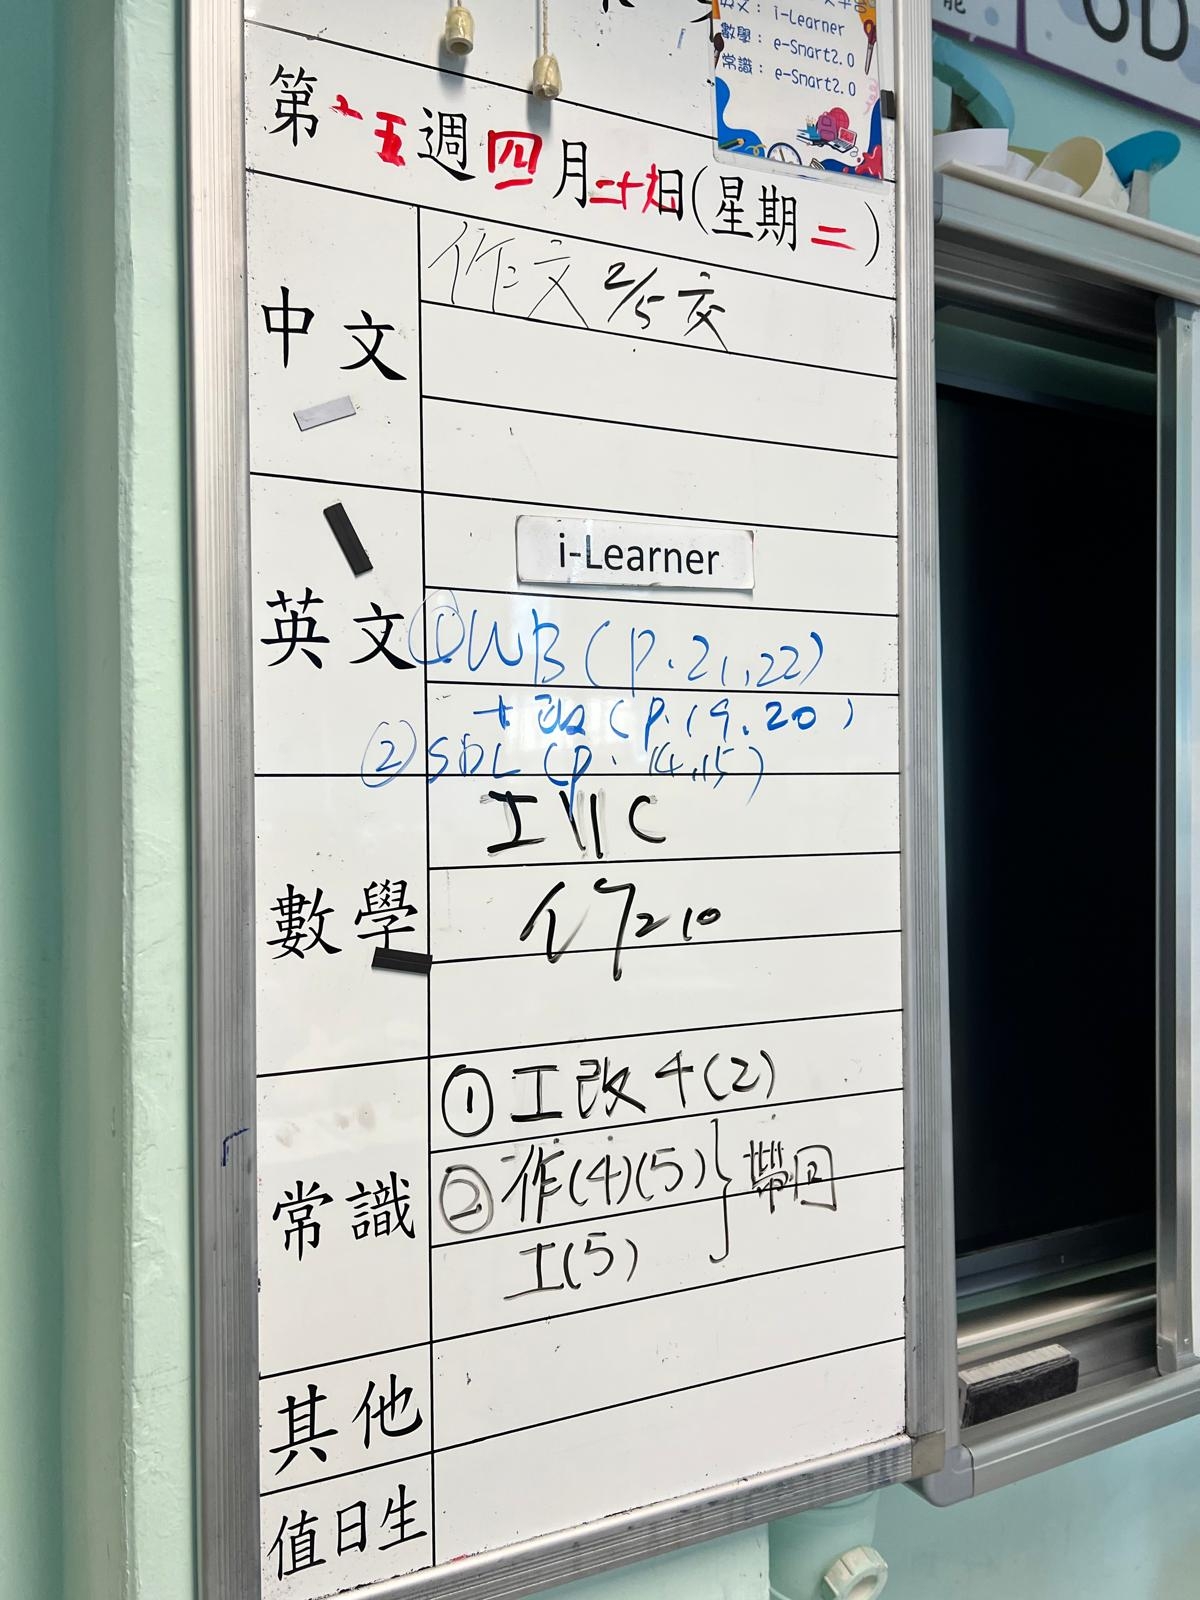 英文： i-Learner
數學： e-Smart2.0
常識： e-Smart2.0
6D
第十五週四月二十九日(星期二)
中文
作文 2/5 交
英文
i-Learner
①WB (p.21,22)
+改(p.19.20)
②SDL (p. 14,15)
數學
工11C
常識
①工改4(2)
②作(4)(5)}帶回
工(5)
其他
值日生